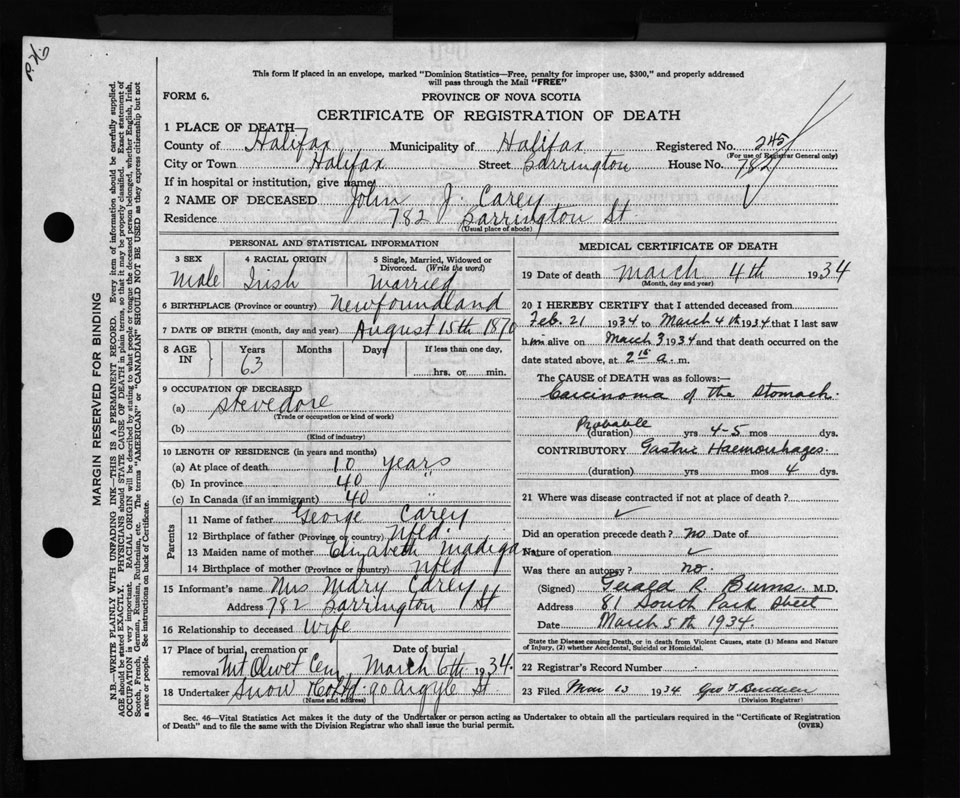 P.K.G
This form if placed in an envelope, marked "Dominion Statistics—Free, penalty for improper use, $300," and properly addressed
will pass through the Mail "FREE"
FORM 6.
PROVINCE OF NOVA SCOTIA
CERTIFICATE OF REGISTRATION OF DEATH
1 PLACE OF DEATH
County of Halifax Municipality of Halifax Registered No. 245
(For use of Registrar General only)
City or Town Halifax Street Barrington House No. 782
If in hospital or institution, give name
2 NAME OF DECEASED John J. Carey
Residence 782 Barrington St
(Usual place of abode)
PERSONAL AND STATISTICAL INFORMATION
3 SEX 4 RACIAL ORIGIN 5 Single, Married, Widowed or
Divorced. (Write the word)
Male Irish Married
6 BIRTHPLACE (Province or country) Newfoundland
7 DATE OF BIRTH (month, day and year) August 15th 1870
8 AGE IN Years Months Days If less than one day,
63 hrs. or min.
9 OCCUPATION OF DECEASED
(a) Stevedore
(Trade or occupation or kind of work)
(b)
(Kind of industry)
10 LENGTH OF RESIDENCE (in years and months)
(a) At place of death 10 years
(b) In province 40 "
(c) In Canada (if an immigrant) 40 "
Parents
11 Name of father George Carey
12 Birthplace of father (Province or country) Nfld.
13 Maiden name of mother Elizabeth Madigan
14 Birthplace of mother (Province or country) Nfld
15 Informant's name Mrs Mary Carey
Address 782 Barrington St
16 Relationship to deceased Wife
17 Place of burial, cremation or Date of burial
removal Mt Olivet Cem March 6th 1934.
18 Undertaker Snow & Co Ltd 90 Argyle St
(Name and address)
MEDICAL CERTIFICATE OF DEATH
19 Date of death March 4th 1934
(Month, day and year)
20 I HEREBY CERTIFY that I attended deceased from
Feb. 21 1934 to March 4th 1934 that I last saw
him alive on March 3 1934 and that death occurred on the
date stated above, at 2 15 a. m.
The CAUSE OF DEATH was as follows:—
Carcinoma of the Stomach.
Probable
(duration) yrs 4-5 mos dys.
CONTRIBUTORY Gastric Haemorrhages.
(duration) yrs mos 4 dys.
21 Where was disease contracted if not at place of death?
✓
Did an operation precede death? no Date of
Nature of operation ✓
Was there an autopsy? no.
(Signed) Gerald R. Burns. M.D.
Address 81 South Park Street
Date March 5th 1934.
State the Disease causing Death, or in death from Violent Causes, state (1) Means and Nature
of Injury, (2) whether Accidental, Suicidal or Homicidal.
22 Registrar's Record Number
23 Filed Mar 13 1934
(Division Registrar)
Sec. 46—Vital Statistics Act makes it the duty of the Undertaker or person acting as Undertaker to obtain all the particulars required in the "Certificate of Registration
of Death" and to file the same with the Division Registrar who shall issue the burial permit.
(OVER)
MARGIN RESERVED FOR BINDING
N.B.—WRITE PLAINLY WITH UNFADING INK—THIS IS A PERMANENT RECORD. Every item of information should be carefully supplied.
AGE should be stated EXACTLY. PHYSICIANS should STATE CAUSE OF DEATH in plain terms, so that it may be properly classified. Exact statement of
OCCUPATION is very important. RACIAL ORIGIN will be described by stating to what people or tongue the deceased person belonged, whether English, Irish,
Scotch, French, German, Russian, Ruthenian, etc. The terms "AMERICAN" or "CANADIAN" SHOULD NOT BE USED as they express citizenship but not
a race or people. See instructions on back of Certificate.